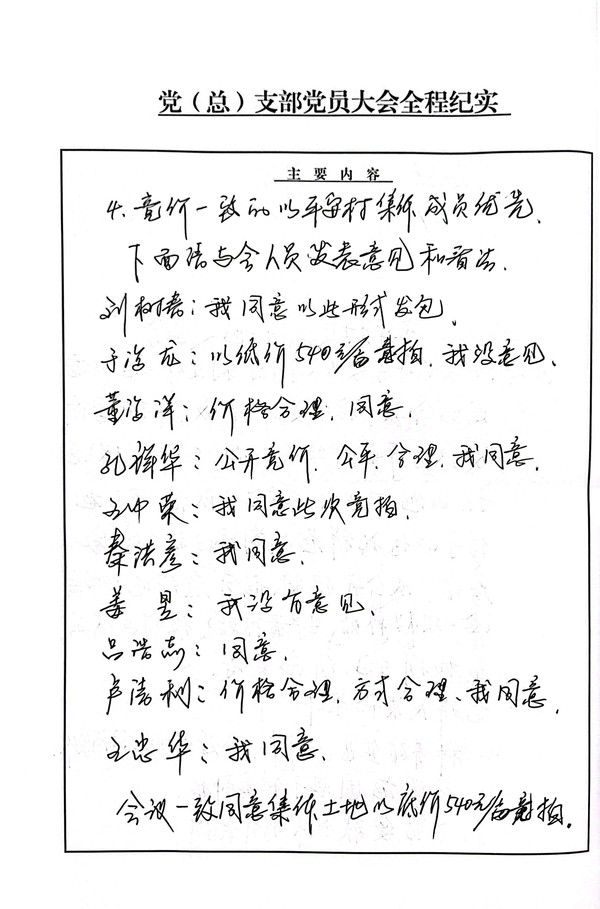 党（总）支部党员大会全程纪实
主要内容
4、竞价一致的以平安村集体成员优先.
下面请与会人员发表意见和看法.
刘树春：我同意以此形式发包.
于海龙：以低价540元/亩竞拍.我没意见.
董海洋：价格合理.同意.
孔祥华：公开竞价.公平.合理.我同意.
王中荣：我同意此次竞拍.
秦洪彦：我同意.
姜昱：我没有意见.
吕浩志：同意.
卢清利：价格合理.方式合理、我同意.
王忠华：我同意.
会议一致同意集体土地以底价540元/亩竞拍.